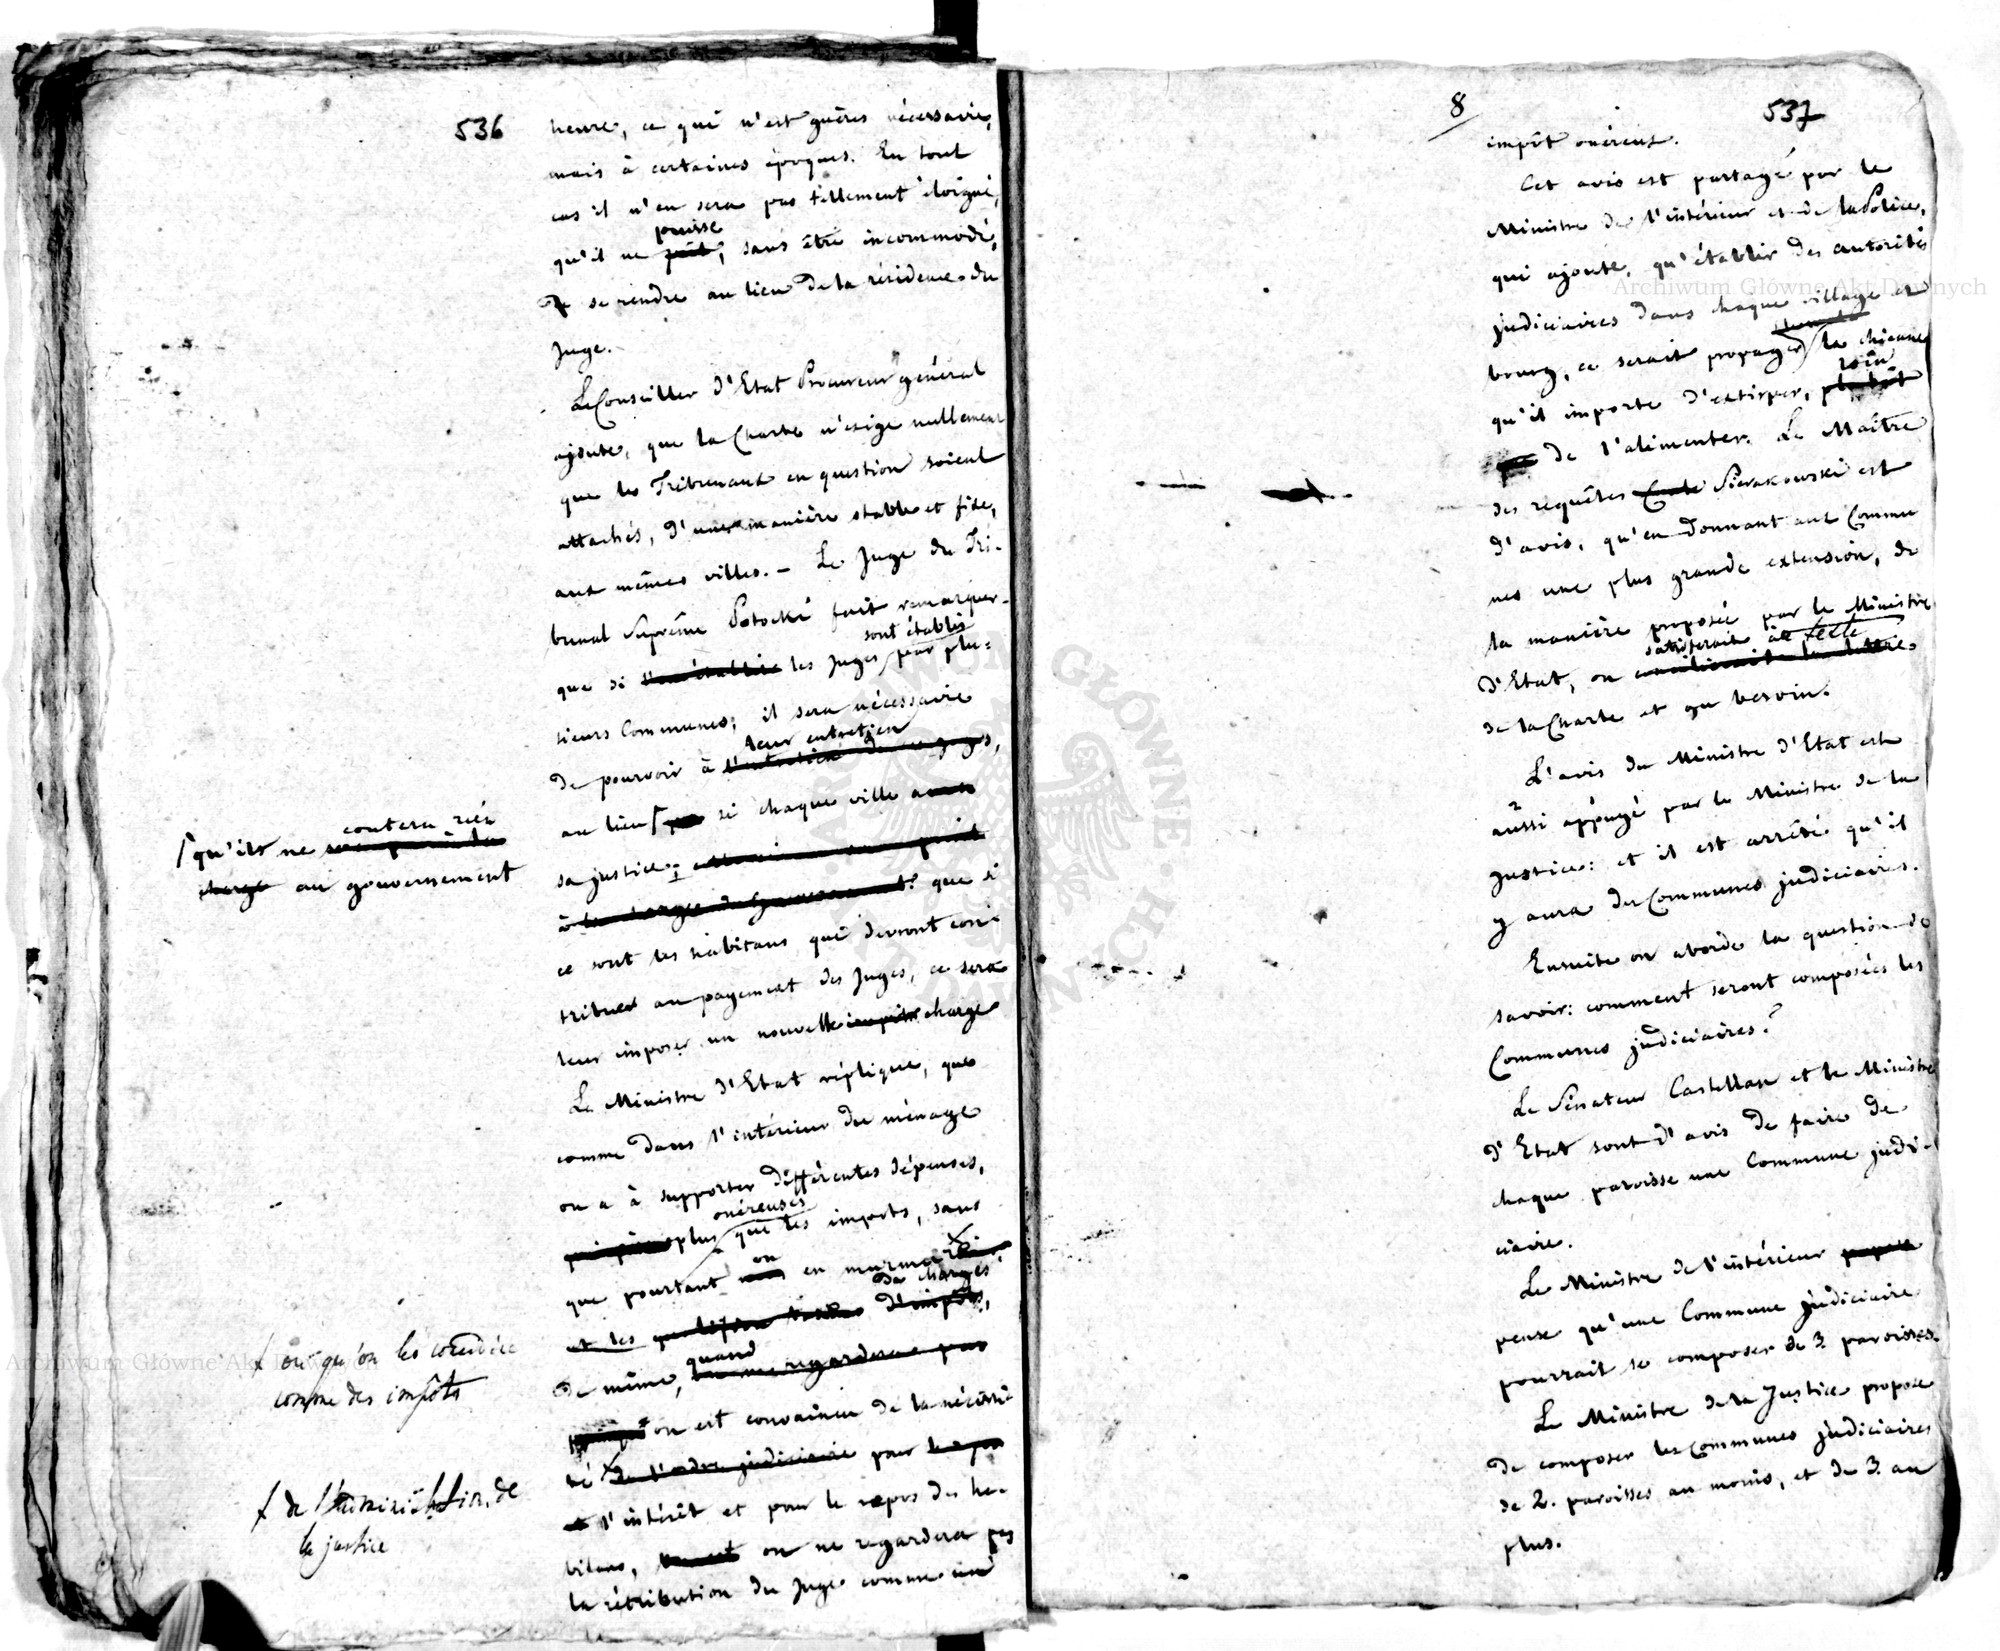 536
heure, ce qui n'est guères nécessaire,
mais à certaines époques. En tout
cas il n'en sera pas tellement éloigné,
puisse
qu'il ne pût, sans être incommodé,
de se rendre au lieu de la résidence du
Juge.
Le Conseiller d'Etat Procureur général
ajoute, que la Charte n'exige nullement
que les Tribunaux en question soient
attachés, d'une manière stable et fixe,
aux mêmes villes. — Le Juge du Tri-
bunal Suprême Potocki fait remarquer
sont établis
que si les Juges par plu-
sieurs Communes, il sera nécessaire
leur entretien
de pourvoir à l'entretien de ces juges,
au lieu si chaque ville aura
contera rien
⌈ qu'ils ne
charge au gouvernement
sa justice;
à la charge du Gouvernement. que si
ce sont les habitans, qui devront con-
tribuer au payement des Juges, ce sera
leur imposer un nouvelle impôt charge
Le Ministre d'Etat réplique, que
comme dans l'intérieur du ménage
on a à supporter différentes dépenses,
onéreuses
plus que les impots, sans
on
que pourtant nous en murmur
de charges
et les d'impôts,
ou qu'on les considère
comme des impôts
quand
de même, on ne regardera pas
on est convaincu de la nécessi-
té de l'ordre judiciaire pour
de l'administration de
la justice
et l'intérêt et pour le repos des ha-
bitans, on ne regardera pas
la rétribution du Juge comme un
8
537
impôt onéreux.
Cet avis est partagé par le
Ministre de l'intérieur et de la Police,
qui ajoute, qu'établir des autorités
judiciaires dans chaque village et
bourg, ce serait propager la chicane
loin
qu'il importe d'extirper, plutôt
que de l'alimenter. Le Maître
des requêtes Comte Sierakowski est
d'avis, qu'en donnant aux Commu
nes une plus grande extension, de
la manière proposée par le Ministre
satisferait à
d'Etat, on concilierait la lettre
de la Charte et au besoin.
L'avis du Ministre d'Etat est
aussi appuyé par le Ministre de la
Justice: et il est arrêté qu'il
y aura des Communes judiciaires.
Ensuite on aborde la question de
savoir: comment seront composées les
Communes judiciaires?
Le Sénateur Castellan et le Ministre
d'Etat sont d'avis de faire de
chaque paroisse une Commune judi-
ciaire.
Le Ministre de l'intérieur propose
pense qu'une Commune judiciaire
pourrait se composer de 3. paroisses.
Le Ministre de la Justice propose
de composer les Communes judiciaires
de 2. paroisses au moins, et de 3. au
plus.
Archiwum Główne Akt Dawnych
Archiwum Główne Akt Dawnych